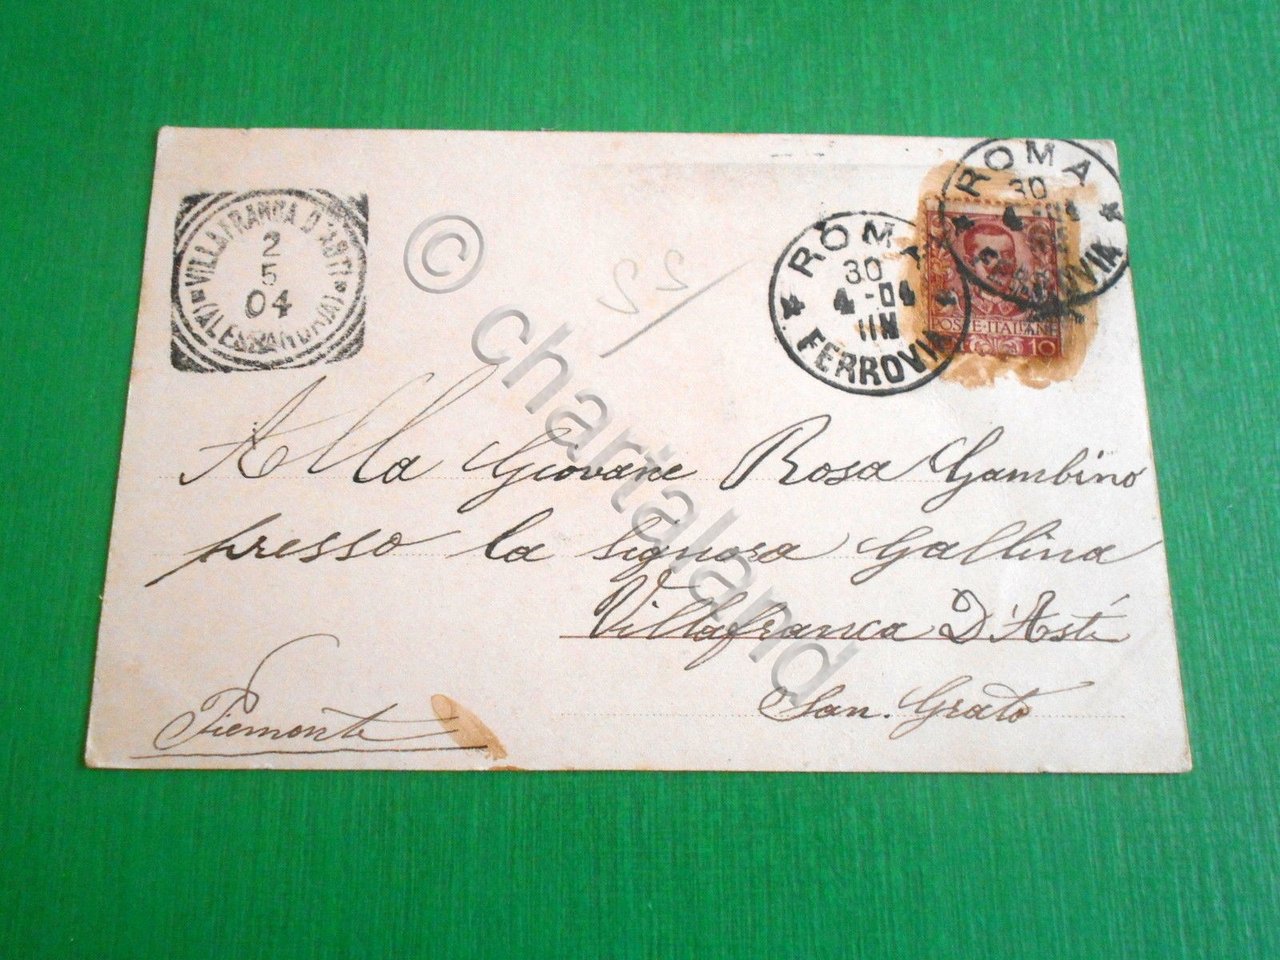 VILLAFRANCA D'ASTI
2
5
04
(ALESSANDRIA)
ROMA
30
4-04
11M
FERROVIA
ROMA
30
4-04
FERROVIA
POSTE·ITALIANE
10
© chartaland
Alla Giovane Rosa Gambino
presso la Signora Gallina
Villafranca D'Asti
San. Grato
Piemonte